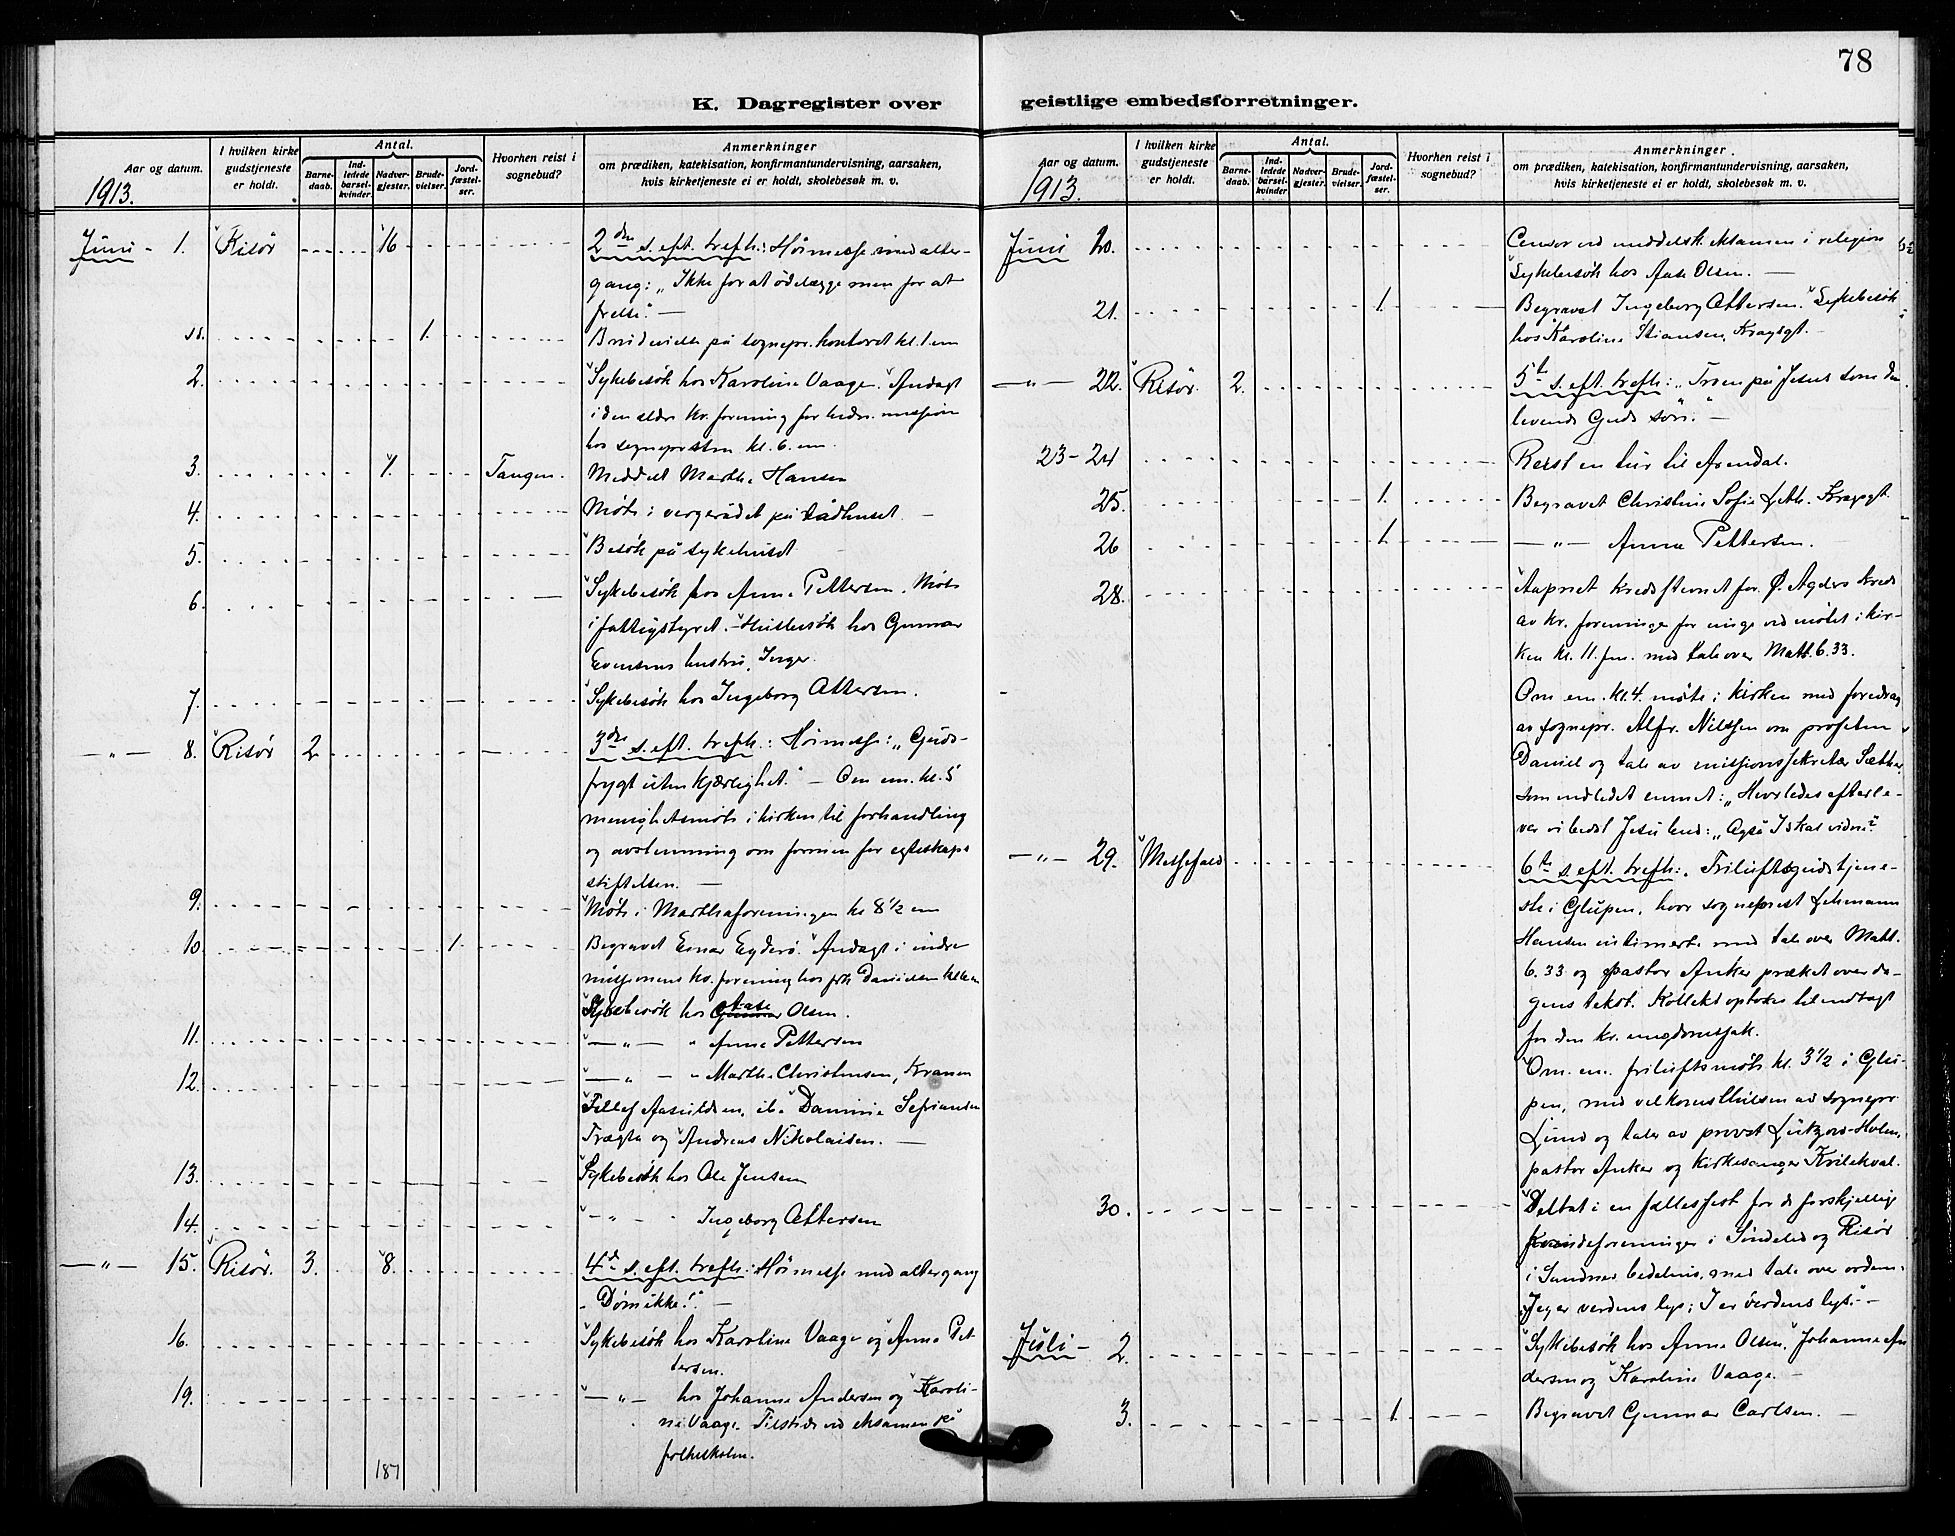 78
K. Dagregister over
geistlige embedsforretninger.
Aar og datum.
1913.
I hvilken kirke gudstjeneste er holdt.
Antal.
Barnedaab.
Indledede barselkvinder.
Nadvergjester.
Brudevielser.
Jordfæstelser.
Hvorhen reist i sognebud?
Anmerkninger
om prædiken, katekisation, konfirmantundervisning, aarsaken,
hvis kirketjeneste ei er holdt, skolebesøk m. v.
Juni - 1. Risör 16 2den s. eft. trefh.: Höimesse med alter-
gang: „Ikke for at ödelægge men for at
frelse". —
s.d. 1. Brudevielse på sognepr. kontoret kl. 1 em
2. Sykebesök hos Karoline Vaage. Andagt
i den eldre kv. forening for indre mission
hos sogneprsten kl. 6 em.
3. 1. Tangen. Meddelt Marthe Hansen
4. Möte i vergerådet på rådhuset. —
5. Besök på sykehuset
6. Sykebesök hos Anne Pettersen. Möte
i fattigstyret. - Husbesök hos Gunnar
Evensens hustru, Inger.
7. Sykebesök hos Ingeborg Ottersen.
—„— 8. Risör 2 3dje s. eft. trefh.: Höimesse: „Guds-
frygt uten kjærlighet." — Om em. kl. 5
menighetsmöte i kirken til forhandling
og avstemning om formen for egteskaps
stiftelsen. —
9. Möte i Marthaforeningen kl 8 1/2 em
10. 1. Begravet Einar Eyderö. Andagt i indre
missionens kv. forening hos frk Danielsen kl 6 em
Sykebesök hos Aase Olsen.
11. —„— „ Anne Pettersen
12. —„— - Marthe Christensen, Kranen
Tellef Aasuldsen, ib. Damine Sefriansen
Trægta og Andreas Nikolaisen. —
13. Sykebesök hos Ole Jensen
14. —„— - Ingeborg Ottersen
—„— 15. Risör. 3. 8. 4de s. eft. trefh.: Höimesse med altergang
„Döm ikke!" —
16. Sykebesök hos Karoline Vaage og Anne Pet-
tersen.
19. —„— hos Johanne Andersen og Karoli-
ne Vaage. Tilstede ved eksamen på
folkeskolen.
187
Aar og datum.
1913.
I hvilken kirke gudstjeneste er holdt.
Antal.
Barnedaab.
Indledede barselkvinder.
Nadvergjester.
Brudevielser.
Jordfæstelser.
Hvorhen reist i sognebud?
Anmerkninger
om prædiken, katekisation, konfirmantundervisning, aarsaken,
hvis kirketjeneste ei er holdt, skolebesøk m. v.
Juni 20. Censor ved middelsk. eksamen i religion
Sykebesök hos Aase Olsen. —
21. 1. Begravet Ingeborg Ottersen. Sykebesök
hos Karoline Stiansen, Kragsgt. -
—„— 22. Risör. 2. 5te s. eft. trefh.: „Troen på Jesus som den
levende Guds sön." —
23-24 Reist en tur til Arendal.
25. 1. Begravet Christine Sofie Kragsgt.
26 1. —„— Anna Pettersen.
28. Aapnet kredsstevnet for Ö. Agders kreds
av kr. foreninger for unge ved mötet i kir-
ken kl. 11. fm. med tale over Matt. 6.33.
Om em. kl. 4 möte i kirken med foredrag
av sognepr. Alfr. Nilssen om profeten
Daniel og tale av missionssekretær Sæther
som indledet emnet: „Hvorledes efterle-
ver vi bedst Jesu bud: „Også I skal vidne".
—„— 29. 6te s. eft. trefh.: Friluftsgudstjene-
ste i Glupen, hvor sogneprest Lehmann
Hansen intimerte med tale over Matt.
6.33 og pastor Anker præket over da-
gens tekst. Kollekt optokes til indtægt
for den kr. ungdomssak.
Om. em. friluftsmöte kl. 3 1/2 i Glu-
pen, med velkomsthilsen av sognepr
Lund og taler av provst Lützow-Holm,
pastor Anker og kirkesanger Kvilekval.
30. Deltat i en fællesfest for de forskjellige
kvindeforeninger i Söndeled og Risör
i Sandnes bedehus, med tale over ordene:
Jeg er verdens lys; I er verdens lys." -
Juli - 2. Sykebesök hos Anne Olsen, Johanne An
dersen og Karoline Vaage. —
3. 1. Begravet Gunnar Carlsen. —